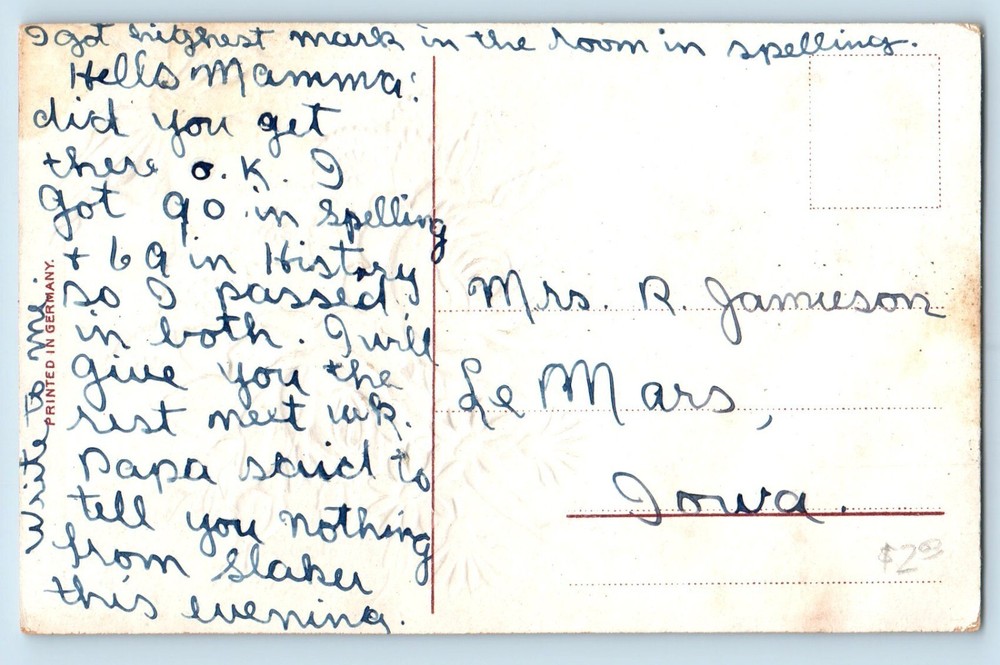 I got highest mark in the room in spelling.
Hello Mamma:
did you get
there o.k. I
Got 90 in Spelling
+ 69 in History
So I passed
in both. I will
give you the
rest next wk.
Papa said to
tell you nothing
from Slaker
this evening.
Write to me.
PRINTED IN GERMANY.
Mrs. R. Jamieson
Le Mars,
Iowa.
$2.00